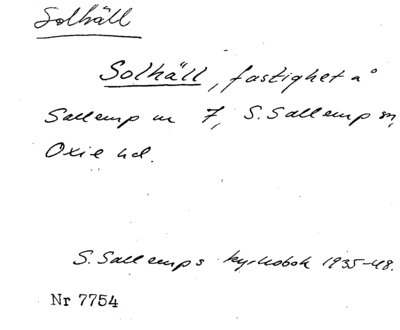 Solhäll
Solhäll, fastighet å
Sallerup nr 7, S. Sallerup sn,
Oxie hd.
S. Sallerups kyrkobok 1935-48.
Nr 7754